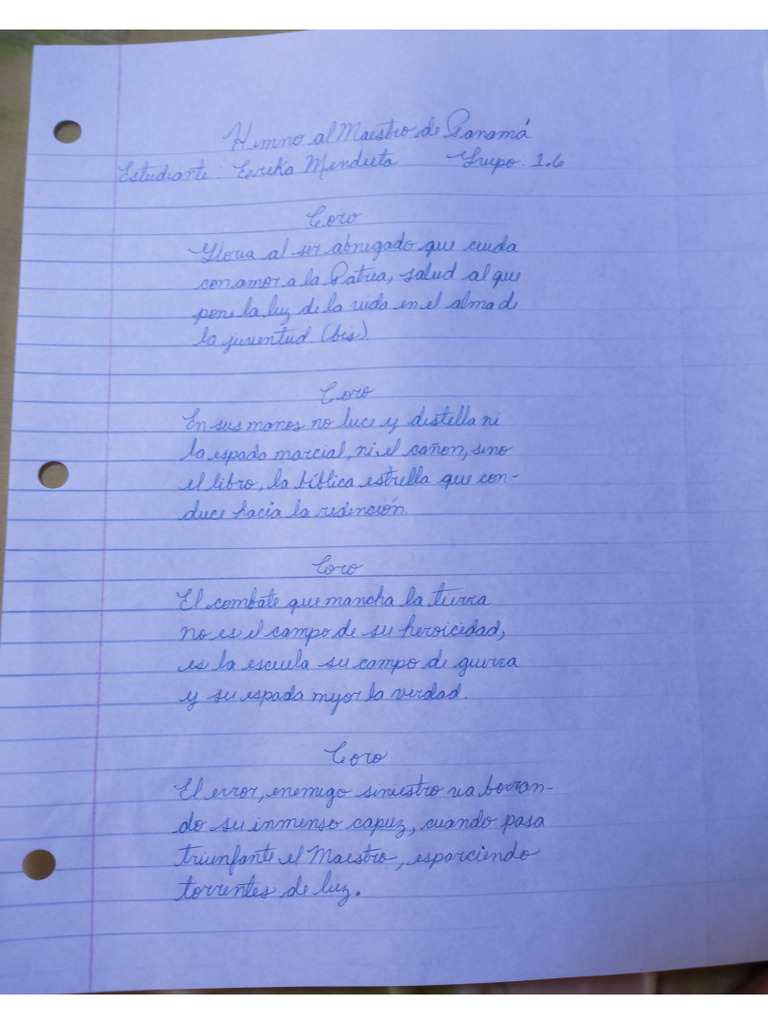 Himno al Maestro de Panamá
Estudiante: Eerika Mendieta Grupo. 1.6
Coro
Gloria al ser abnegado que cuida
con amor a la Patria, salud al que
pone la luz de la vida en el alma de
la juventud (bis).
Coro
En sus manos no luce y distella ni
la espada marcial, ni el cañon, sino
el libro, la bíblica estrella que con-
duce hacia la redención.
Coro
El combate que mancha la tierra
no es el campo de su heroicidad,
es la escuela su campo de guerra
y su espada mejor la verdad.
Coro
El error, enemigo siniestro va borran-
do su inmenso capuz, cuando pasa
triunfante el Maestro, esparciendo
torrentes de luz.